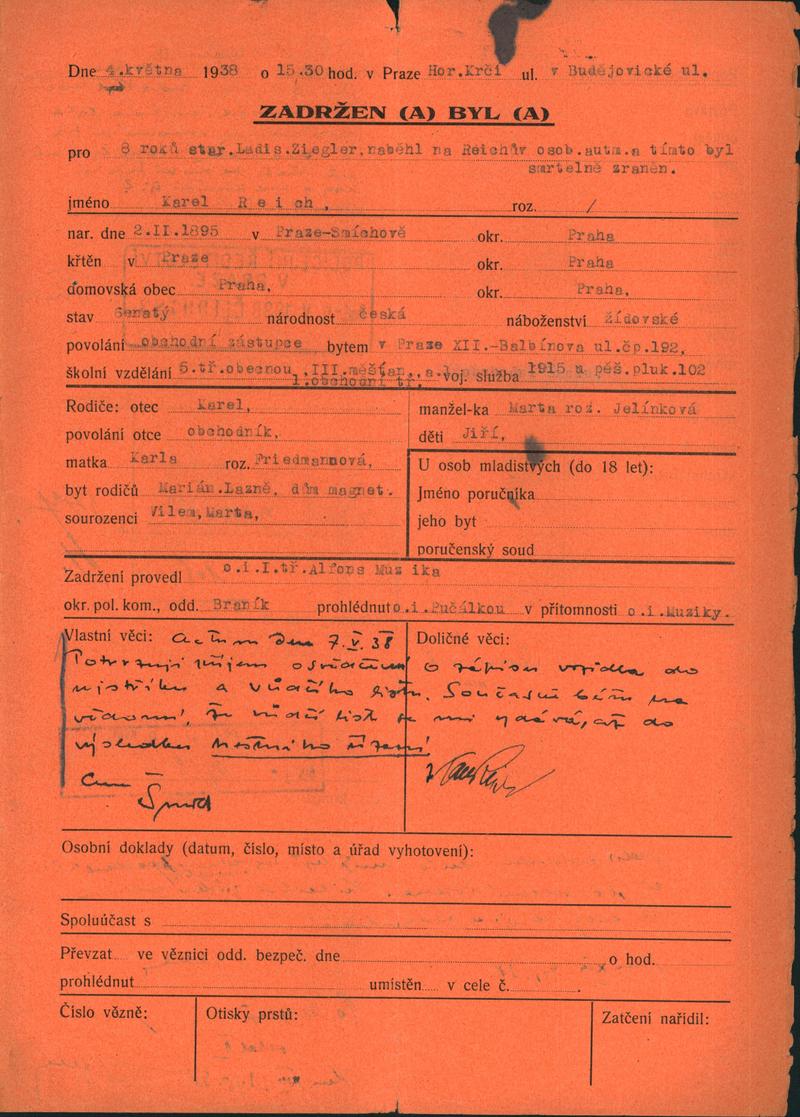 Dne 4.května 1938 o 15.30 hod. v Praze Hor.Krči ul. v Budějovické ul.
ZADRŽEN (A) BYL (A)
pro 8 roků star.Ladis.Ziegler,naběhl na Reichův osob.autm.a tímto byl
smrtelně zraněn.
jméno Karel Reich, roz. /
nar. dne 2.II.1895 v Praze-Smíchově okr. Praha
křtěn v Praze okr. Praha
domovská obec Praha, okr. Praha,
stav ženatý národnost česká náboženství židovské
povolání obchodní zástupce bytem v Praze XII.-Balbínova ul.čp.192,
školní vzdělání 5.tř.obecnou,III.měšťan.,a.1 voj. služba 1915 u pěš.pluk.102
1.obchodní tř.
Rodiče: otec Karel,
povolání otce obchodník,
matka Karla roz. Friedmannová,
byt rodičů Marián.Lazně, dům magnet.
sourozenci Vilem,Marta,
manžel-ka Marta roz. Jelínková
děti Jiří,
U osob mladistvých (do 18 let):
Jméno poručníka
jeho byt
poručenský soud
Zadržení provedl o.i.I.tř.Alfons Muzika
okr. pol. kom., odd. Braník prohlédnut o.i.Pučálkou v přítomnosti o.i.Muziky.
Vlastní věci: Doličné věci:
7.V.38
Potvrzuji příjem osvědčení o zápisu vozidla do
rejstříku a vůdčího listu. Současně beru na
vědomí, že vůdčí list se mi vydává, až do
výsledku trestního řízení
Osobní doklady (datum, číslo, místo a úřad vyhotovení):
Spoluúčast s
Převzat ve věznici odd. bezpeč. dne o hod.
prohlédnut umístěn v cele č.
Číslo vězně: Otisky prstů: Zatčení nařídil: